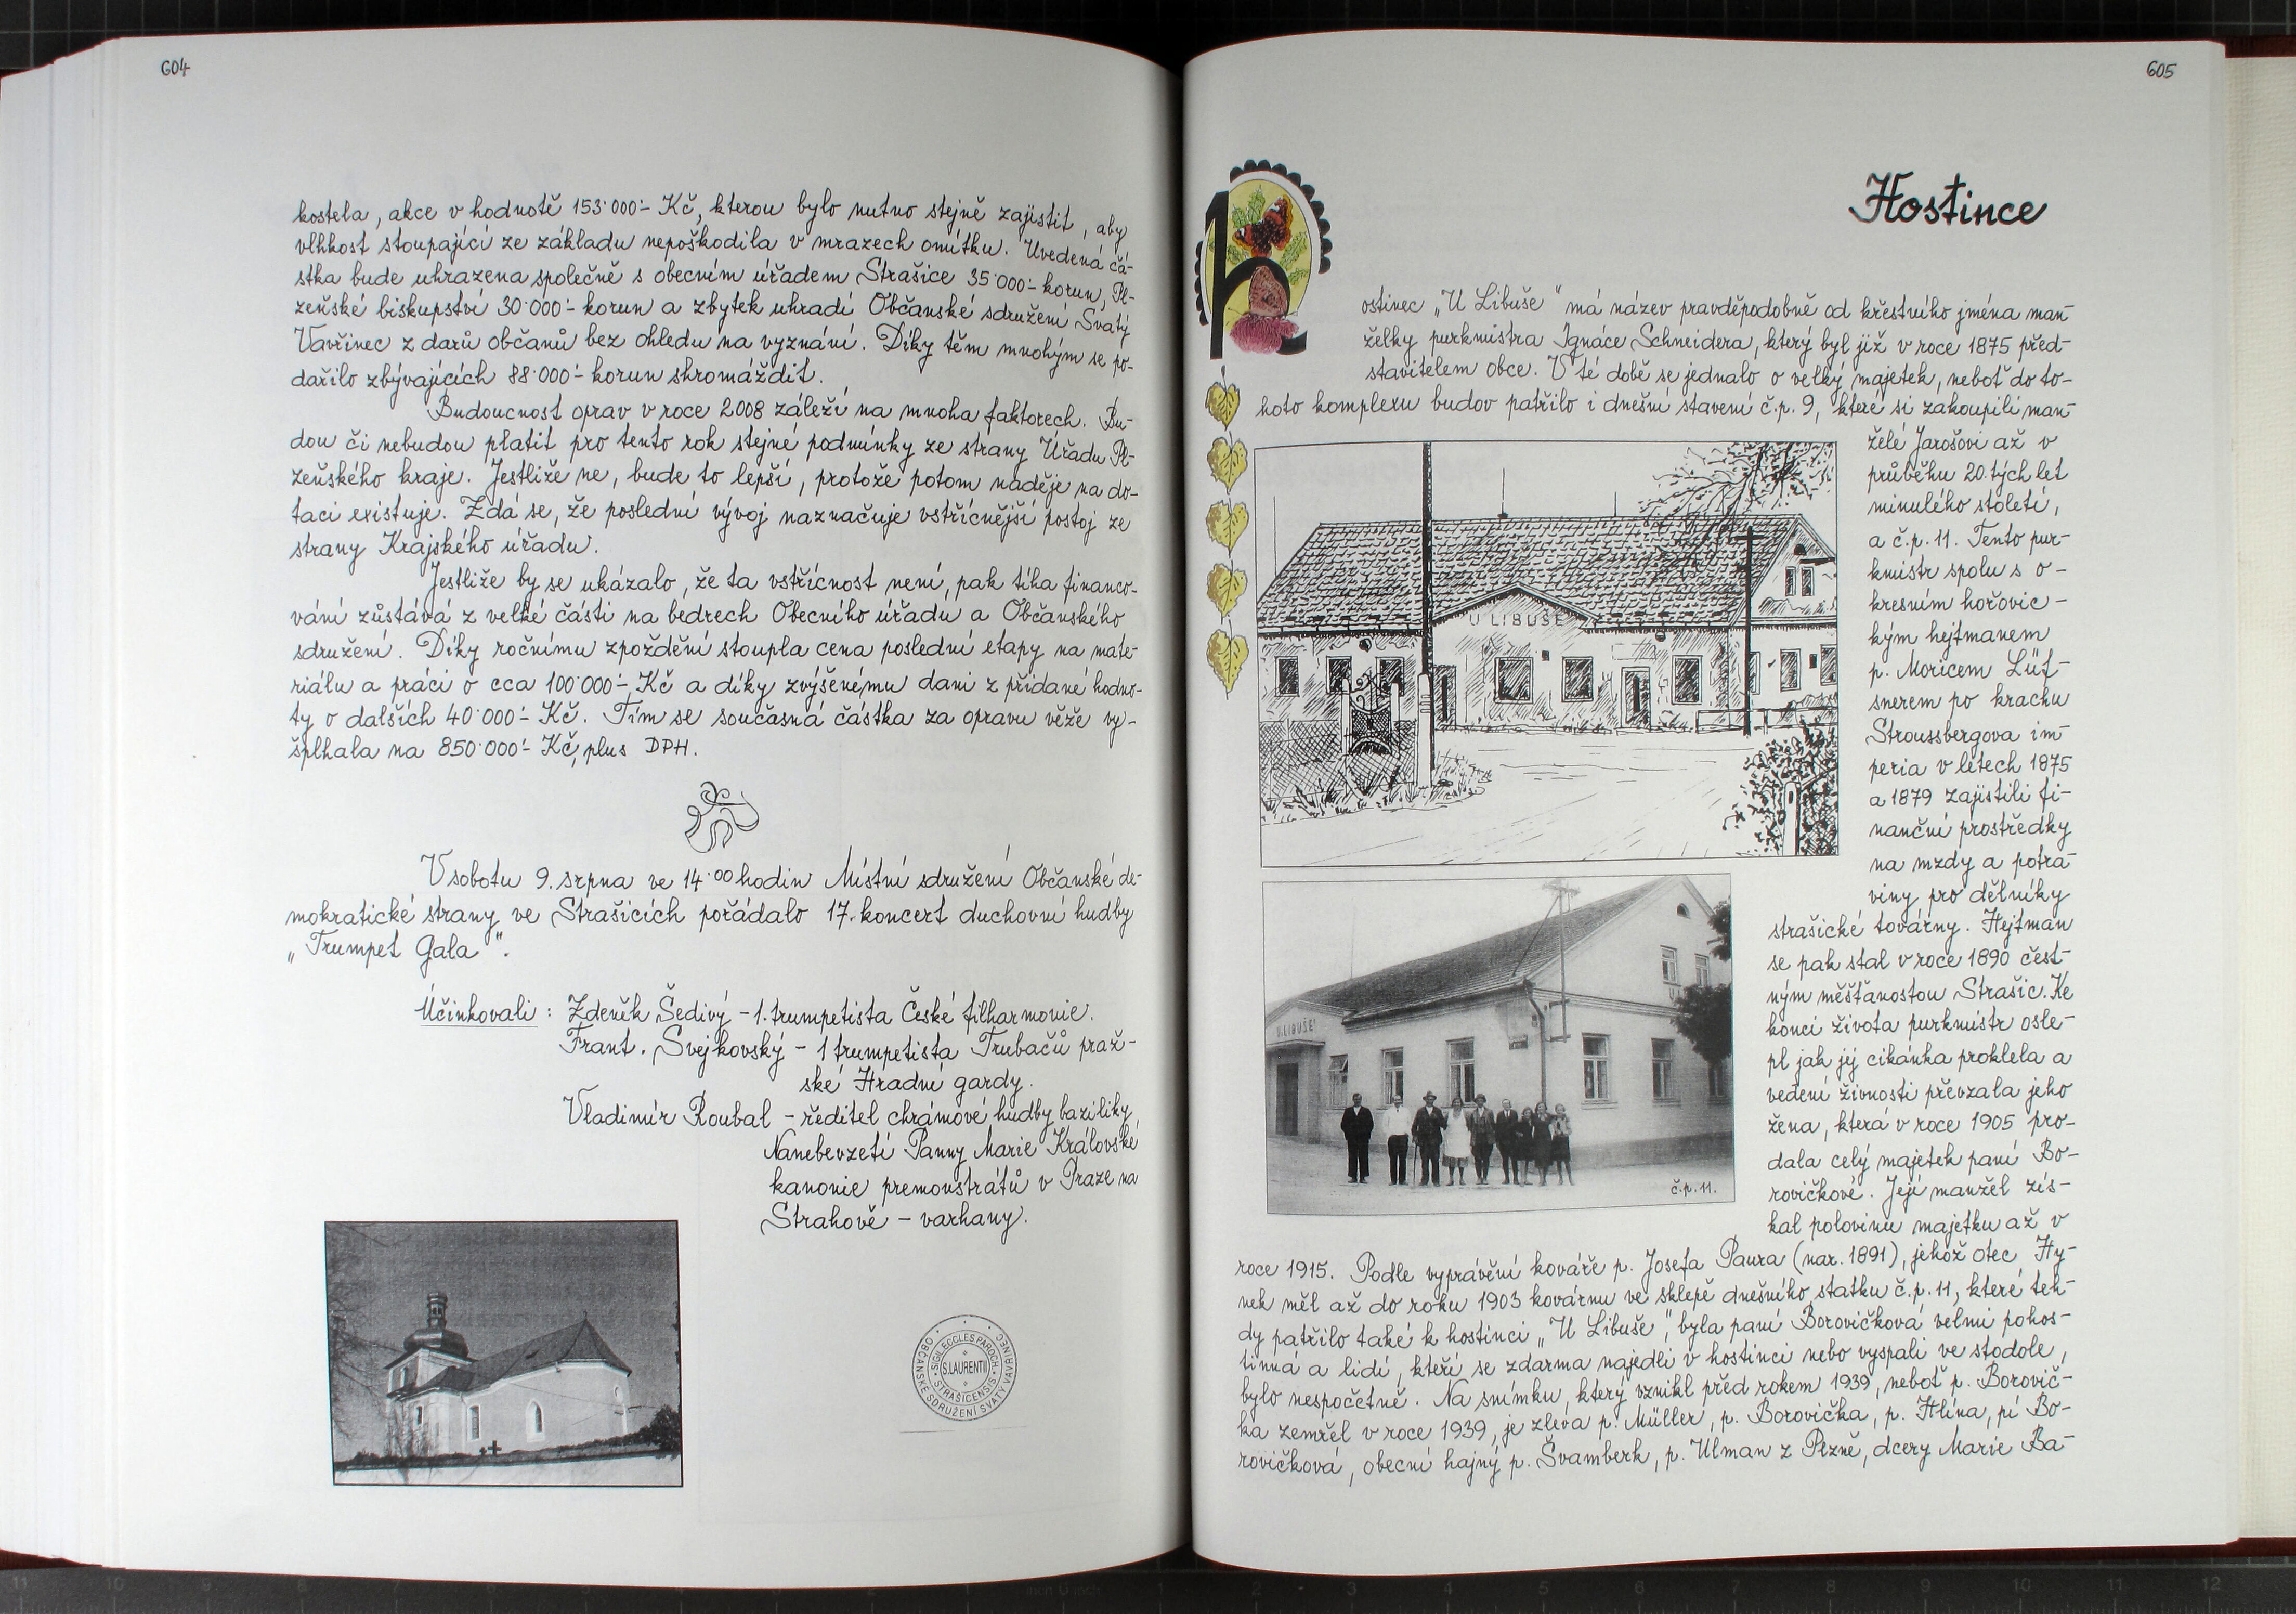 604
kostela, akce v hodnotě 153˙000´- Kč, kterou bylo nutno stejně zajistit, aby
vlhkost stoupající ze základu nepoškodila v mrazech omítku. Uvedená čá-
stka bude uhrazena společně s obecním úřadem Strašice 35˙000´- korun, Pl-
zeňské biskupství 30˙000´- korun a zbytek uhradí Občanské sdružení Svatý
Vavřinec z darů občanů bez ohledu na vyznání. Díky těm mnohým se po-
dařilo zbývajících 88˙000´- korun shromáždit.
Budoucnost oprav v roce 2008 záleží na mnoha faktorech. Bu-
dou či nebudou platit pro tento rok stejné podmínky ze strany Úřadu Pl-
zeňského kraje. Jestliže ne, bude to lepší, protože potom naděje na do-
taci existuje. Zdá se, že poslední vývoj naznačuje vstřícnější postoj ze
strany Krajského úřadu.
Jestliže by se ukázalo, že ta vstřícnost není, pak tíha financo-
vání zůstává z velké části na bedrech Obecního úřadu a Občanského
sdružení. Díky ročnímu zpoždění stoupla cena poslední etapy na mate-
riálu a práci o cca 100˙000´- Kč a díky zvýšenému dani z přidané hodno-
ty o dalších 40˙000´- Kč. Tím se současná částka za opravu věže vy-
šplhala na 850˙000´- Kč, plus DPH.
V sobotu 9. srpna ve 14˙00 hodin Místní sdružení Občanské de-
mokratické strany ve Strašicích pořádalo 17. koncert duchovní hudby
„Trumpet Gala".
Účinkovali: Zdeněk Šedivý - 1. trumpetista České filharmonie.
Frant. Svejkovský - 1 trumpetista Trubačů praž-
ské Hradní gardy.
Vladimír Roubal - ředitel chrámové hudby baziliky
Nanebevzetí Panny Marie Královské
kanonie premonstrátů v Praze na
Strahově - varhany.
OBČANSKÉ SDRUŽENÍ SVATÝ VAVŘINEC
SIGIL.ECCLES.PAROCH.
STRAŠICENSIS
S.LAURENTII
605
Hostince
h
ostinec „U Libuše" má název pravděpodobně od křestního jména man-
želky purkmistra Ignáce Schneidera, který byl již v roce 1875 před-
stavitelem obce. V té době se jednalo o velký majetek, neboť do to-
hoto komplexu budov patřilo i dnešní stavení č.p. 9, které si zakoupili man-
želé Jarošovi až v
průběhu 20.tých let
minulého století,
a č.p. 11. Tento pur-
kmistr spolu s o-
kresním hořovic-
kým hejtmanem
p. Moricem Lüf-
snerem po krachu
Stroussbergova im-
peria v létech 1875
a 1879 zajistili fi-
nanční prostředky
na mzdy a potra-
viny pro dělníky
U LIBUŠE
strašické továrny. Hejtman
se pak stal v roce 1890 čest-
ným měšťanostou Strašic. Ke
konci života purkmistr osle-
pl jak jej cikánka proklela a
vedení živnosti převzala jeho
žena, která v roce 1905 pro-
dala celý majetek paní Bo-
rovičkové. Její manžel zís-
kal polovinu majetku až v
U LIBUŠE
č.p. 11.
roce 1915. Podle vyprávění kováře p. Josefa Paura (nar. 1891), jehož otec Hy-
nek měl až do roku 1903 kovárnu ve sklepě dnešního statku č.p. 11, které teh-
dy patřilo také k hostinci „U Libuše", byla paní Borovičková velmi pohos-
tinná a lidí, kteří se zdarma najedli v hostinci nebo vyspali ve stodole,
bylo nespočetně. Na snímku, který vznikl před rokem 1939, neboť p. Borovič-
ka zemřel v roce 1939, je zleva p. Müller, p. Borovička, p. Hlína, pí Bo-
rovičková, obecní hajný p. Švamberk, p. Ulman z Plzně, dcery Marie Ba-